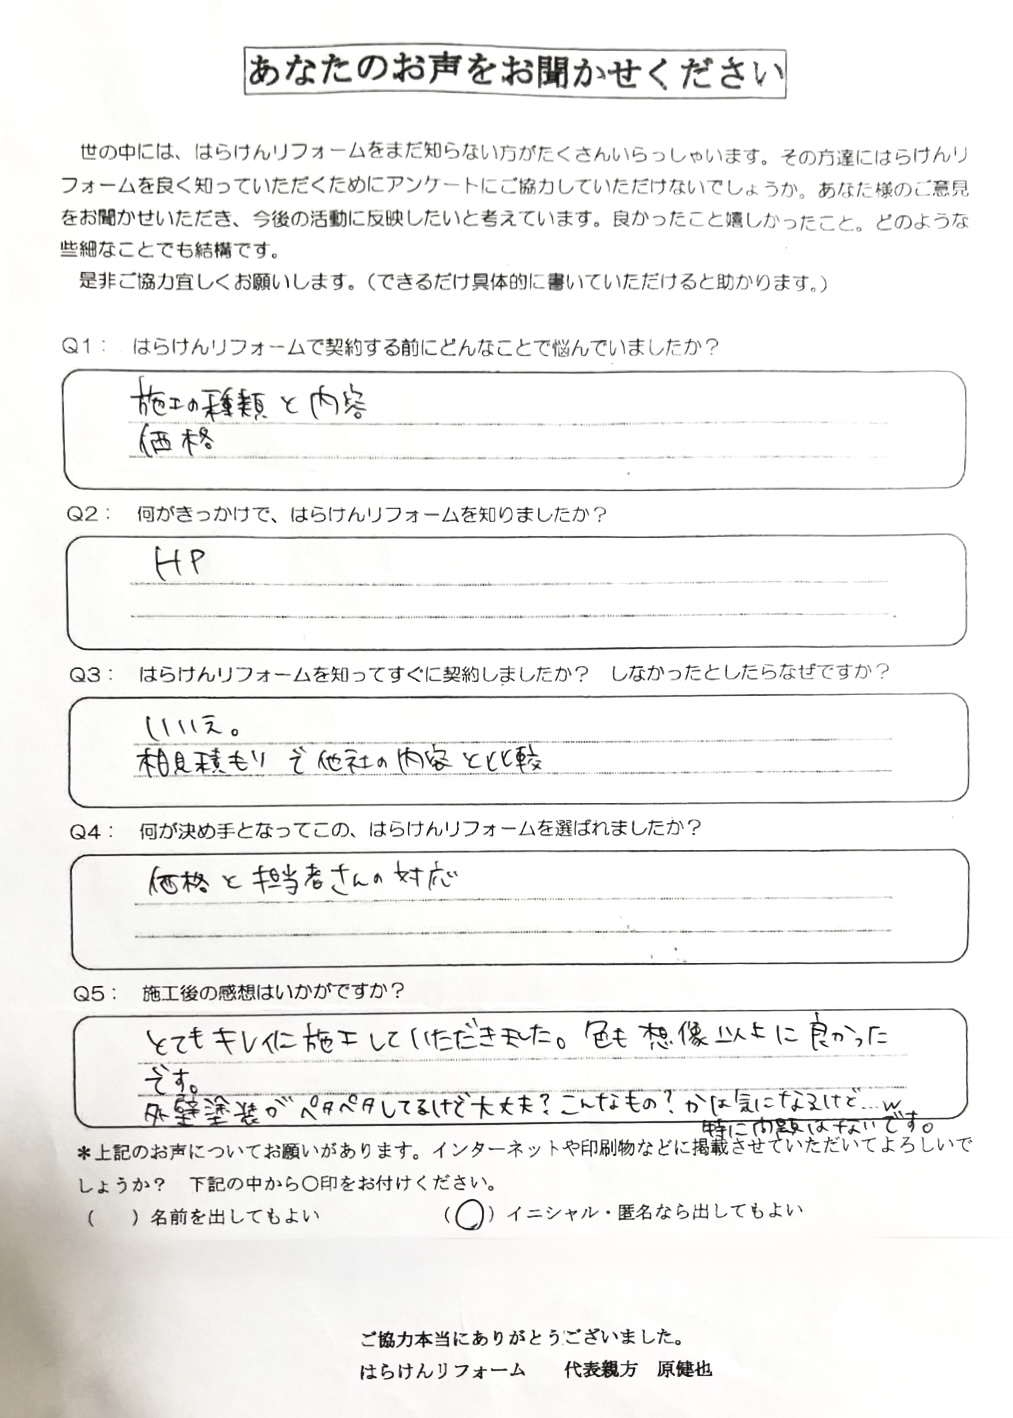 あなたのお声をお聞かせください
世の中には、はらけんリフォームをまだ知らない方がたくさんいらっしゃいます。その方達にはらけんリ
フォームを良く知っていただくためにアンケートにご協力していただけないでしょうか。あなた様のご意見
をお聞かせいただき、今後の活動に反映したいと考えています。良かったこと嬉しかったこと。どのような
些細なことでも結構です。
是非ご協力宜しくお願いします。(できるだけ具体的に書いていただけると助かります。)
Q1： はらけんリフォームで契約する前にどんなことで悩んでいましたか？
施工の種類と内容
価格
Q2： 何がきっかけで、はらけんリフォームを知りましたか？
HP
Q3： はらけんリフォームを知ってすぐに契約しましたか？ しなかったとしたらなぜですか？
いいえ。
相見積もりで他社の内容と比較
Q4： 何が決め手となってこの、はらけんリフォームを選ばれましたか？
価格と担当者さんの対応
Q5： 施工後の感想はいかがですか？
とてもキレイに施工していただきました。色も想像以上に良かった
です。
外壁塗装がペタペタしてるけど大丈夫？こんなもの？かは気になるけど…w
特に問題はないです。
＊上記のお声についてお願いがあります。インターネットや印刷物などに掲載させていただいてよろしいで
しょうか？ 下記の中から〇印をお付けください。
（ ）名前を出してもよい （〇）イニシャル・匿名なら出してもよい
ご協力本当にありがとうございました。
はらけんリフォーム 代表親方 原健也